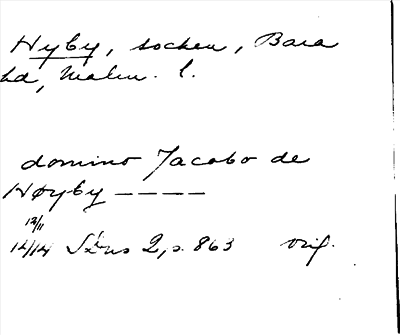 Hyby, socken, Bara
hd, Malm. l.
domino Jacobo de
Høyby ————
12/11
14/14 SRus 2, s. 863 orig.